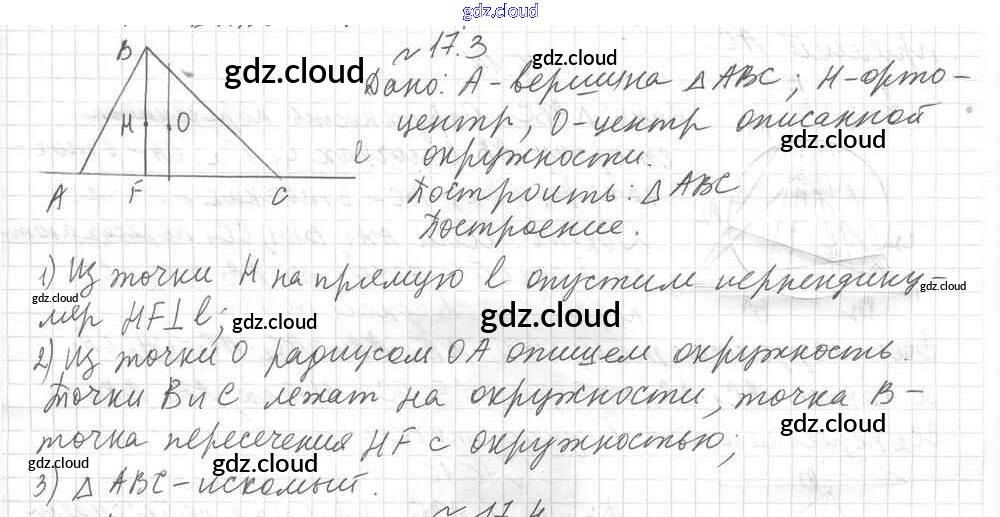 gdz.cloud
№ 17.3
B
gdz.cloud
Дано: А-вершина △ABC; H-орто-
H O
центр, O-центр описанной
gdz.cloud
l
окружности.
A F C
Построить: △ABC
gdz.cloud
Построение.
1) Из точки H на прямую l опустим перпендику-
gdz.cloud gdz.cloud
ляр HF⊥l;
gdz.cloud gdz.cloud
2) Из точки O радиусом OA опишем окружность.
Точки B и C лежат на окружности, точка B-
gdz.cloud
точка пересечения HF с окружностью;
gdz.cloud gdz.cloud gdz.cloud
3) △ ABC-искомый.
№ 17.4